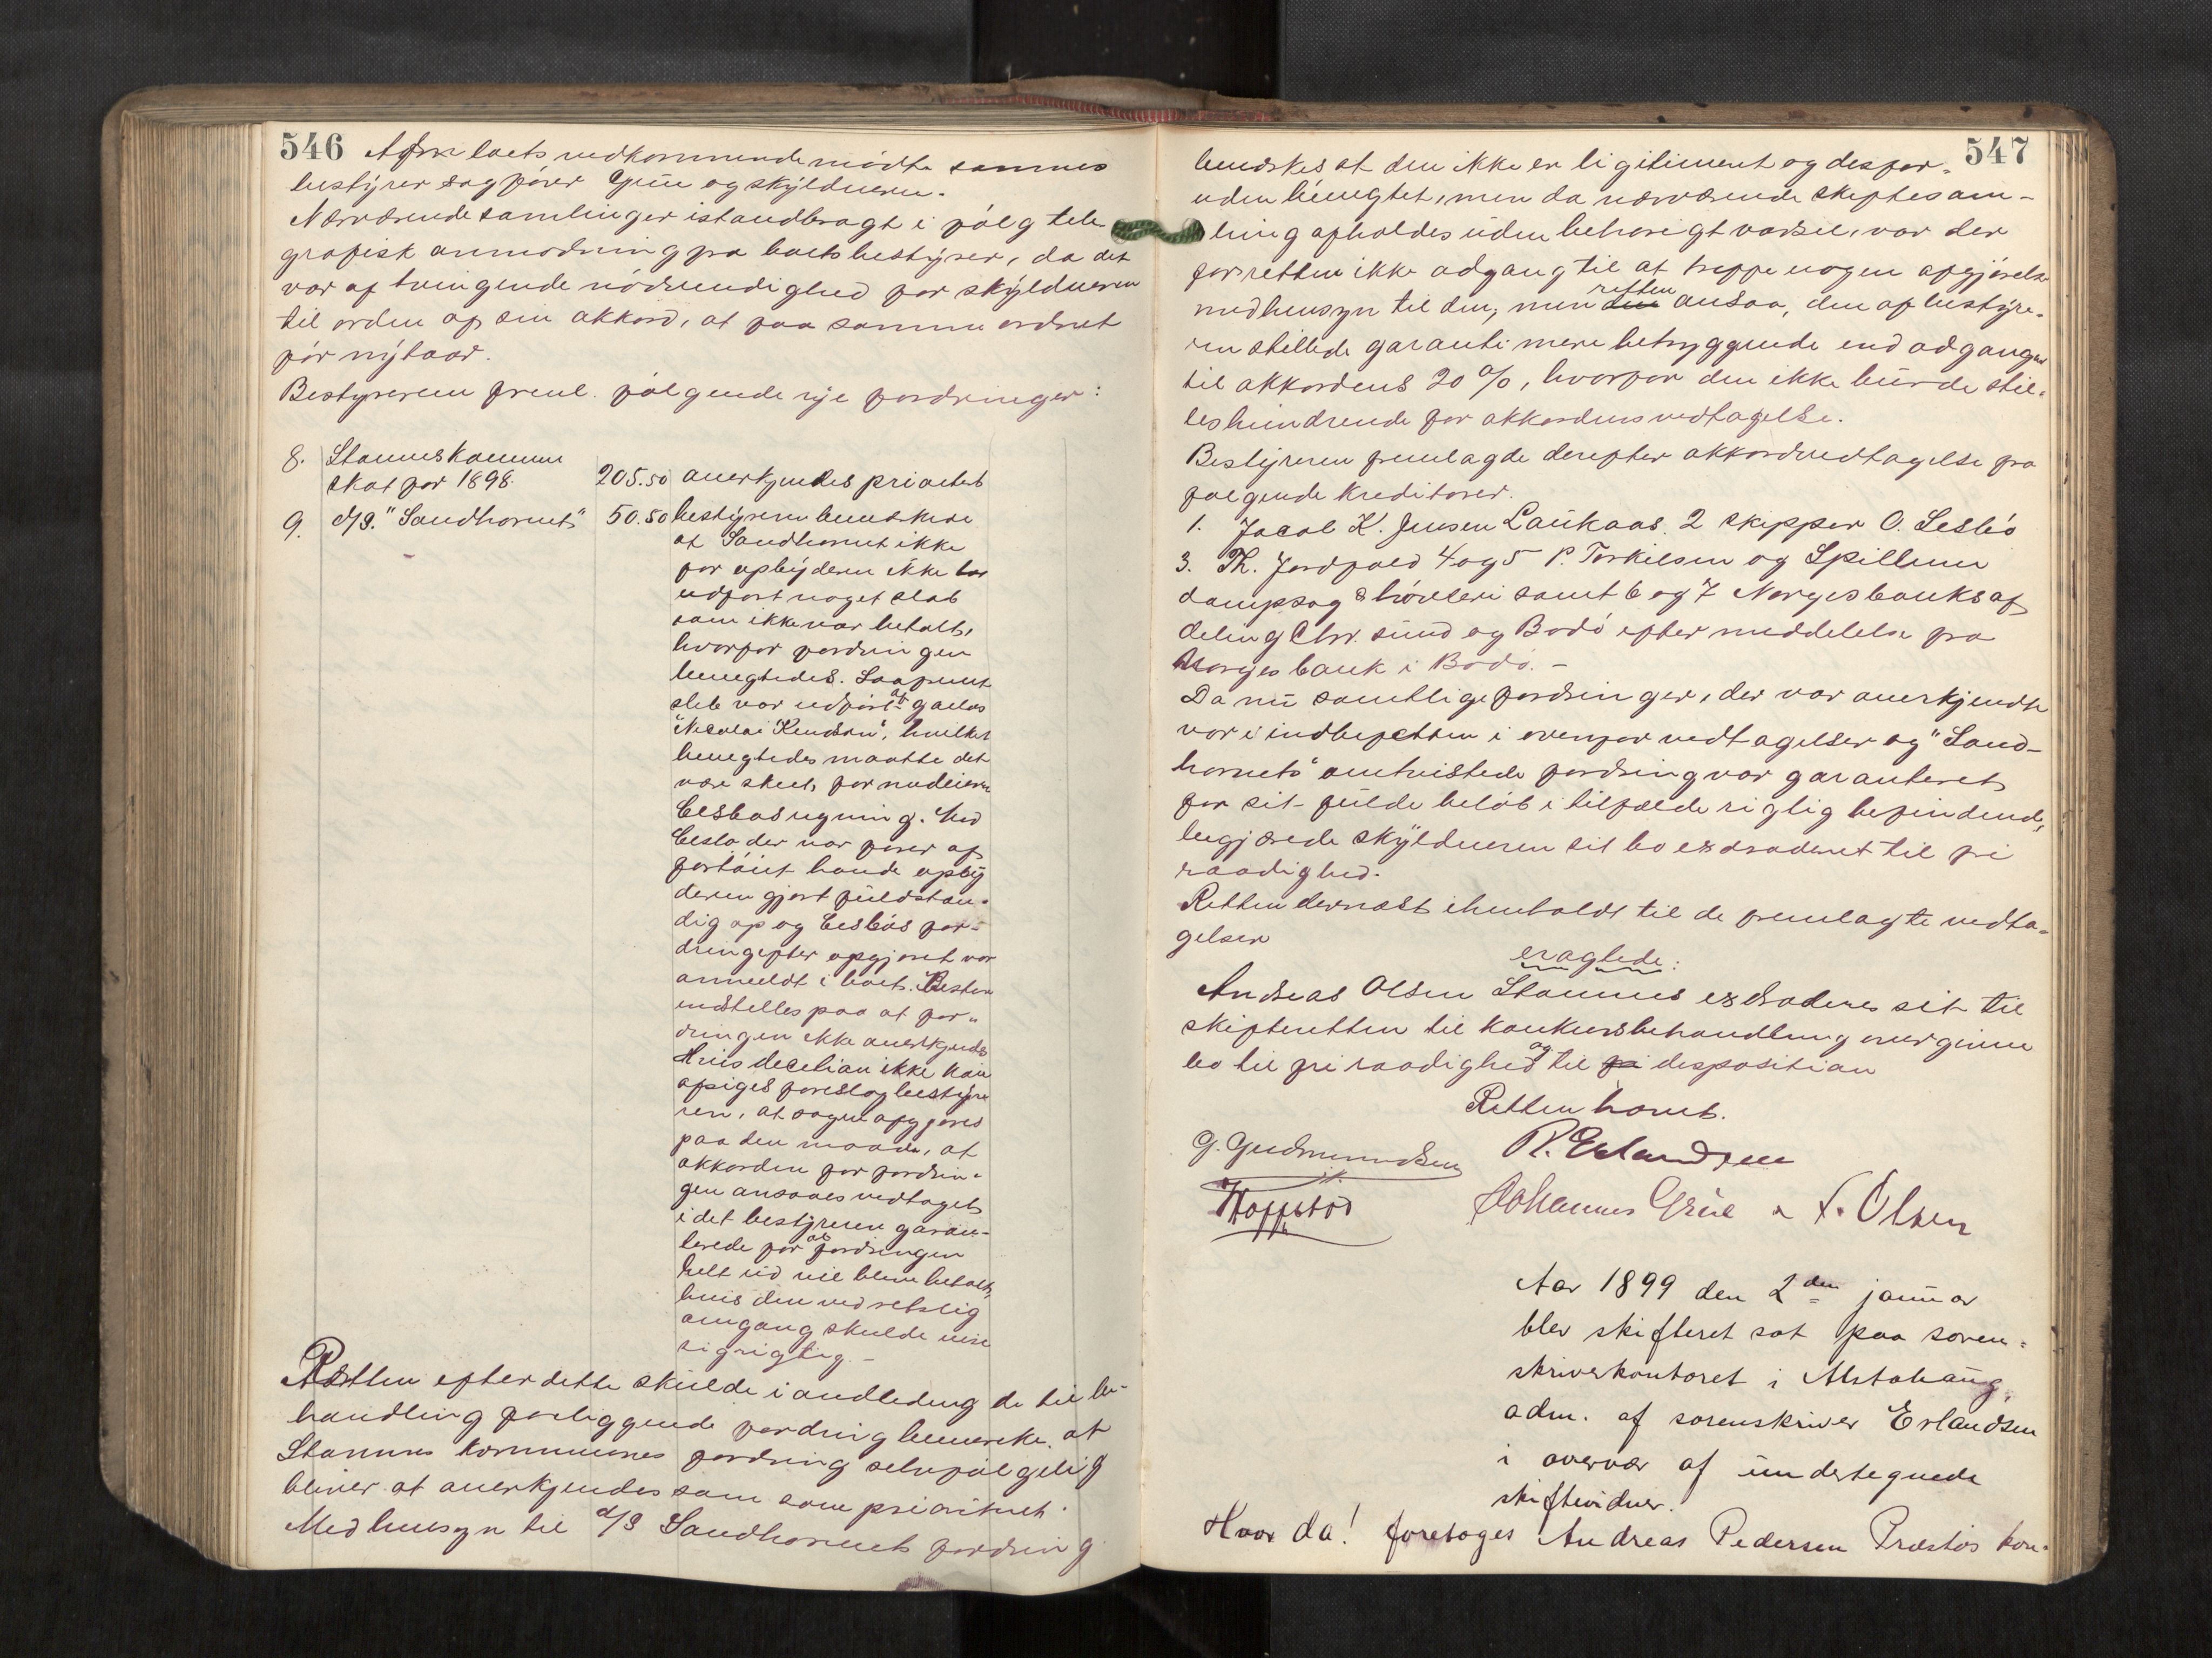 546
Af boets vedkommende mødte sammes
bestyrer sagfører Grüe og skyldneren.
Nærværende samling er istandbragt i følg tele
grafisk anmodning fra boets bestyrer, da det
var af tvingende nødvendighed for skyldneren
til orden af sin akkord, at faa samme ordnet
før nytaar.
Bestyreren freml. følgende nye fordringer:
8. Stamnes kommune
skat for 1898. 205.50 anerkjendes prioritet
9. d/s. "Sandhornet" 50.50 bestyreren bemærkede
at Sandhornet ikke
for opbyderen ikke har
udført noget slæb
som ikke var betalt,
hvorfor fordringen
benegtedes. Saafremt
slæb var udført af galeas
"Nicolai Knudsen", hvilket
benegtedes maatte det
være skeet for medeieren
Lesbøs regning. Med
Lesbø der var fører af
fartøiet havde opby
deren gjort fuldstæn-
dig op og Lesbøs for-
dring efter opgjøret var
anmeldt i boet. Best.
indstilles paa at for-
dringen ikke anerkjendes
Hvis decetion ikke kan
afsiges foreslog bestyre
ren, at sagen afgjøres
paa den maade, at
akkorden for fordrin-
gen ansaaes vedtaget
i det bestyreren garan-
terede for at fordringen
helt ud vil blive betalt,
hvis den ved retslig
omgang skulde vise
sig rigtig.-
Retten efter dette skulde i andledning de til be-
handling foreliggende fordring bemerke, at
Stamnes kommunes fordring selvfølgelig
bliver at anerkjendes som som prioritet.
Med hensyn til d/s Sandhornets fordring
547
bemerkes at den ikke er ligitimeret og desfor-
uden benegtet, men da nærværende skiftesam-
ling afholdes uden behørigt varsel, var der
for retten ikke adgang til at træffe nogen afgjørelse
med hensyn til den, men den retten ansaa, den af bestyre-
ren stillede garanti mere betryggende end adgangen
til akkordens 20 %, hvorfor den ikke burde stil-
les hindrende for akkordens vedtagelse.
Bestyreren fremlagde derefter akkordvedtagelse fra
følgende kreditorer.
1. Jacob K. Jensen Laukaas. 2 skipper O. Lesbø
3. Th. Jordfald 4 og 5 P. Torkilsen og Spillum
dampsag & høvleri samt 6 og 7 Norges banks af
deling Chr. sund og Bodø efter meddelelse fra
Norges bank i Bodø.-
Da nu samtlige fordringer, der var anerkjendte
var indbefattet i ovenfor vedtagelser og "Sand-
hornets" omtvistede fordring var garanteret
for sit fulde beløb i tilfælde rigtig befindende,
begjærede skyldneren sit bo exdraderet til fri
raadighed.
Retten dernæst i henhold til de fremlagte vedta-
gelser
eragtede:
Andreas Olsen Stamnes exdraderes sit til
skifteretten til konkursbehandling overgivne
bo til fri raadighed og til fri desposition
Retten hævet.
G. Gudmundsen R. Erlandsen
Johannes Grüe A. Olsen
Aar 1899 den 2den januar
blev skifteret sat paa soren-
skriverkontoret i Alstahaug,
adm. af sorenskriver Erlandsen
i overvær af undertegnede
skiftevidner.
Hvor da! foretages Andreas Pedersen Præstøs kon-